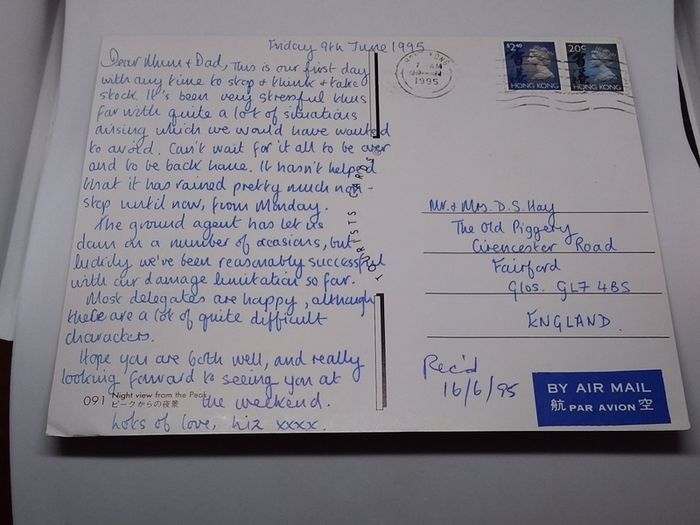 Friday 9th June 1995
Dear Mum + Dad, This is our first day
with any time to stop + think + take
stock. It's been very stressful thus
far with quite a lot of situations
arising which we would have wanted
to avoid. Can't wait for it all to be over
and to be back home. It hasn't helped
that it has rained pretty much non-
stop until now, from Monday.
The ground agent has let us
down on a number of occasions, but
luckily we've been reasonably successful
with our damage limitation so far.
Most delegates are happy, although
there are a lot of quite difficult
characters.
Hope you are both well, and really
looking forward to seeing you at
the weekend.
Lots of love, Liz xxxx.
091 Night view from the Peak
ピークからの夜景
HONG KONG
1995
$2.40
香港
HONG KONG
20c
香港
HONG KONG
Mr. + Mrs. D. S. Hay
The Old Piggery
Cirencester Road
Fairford
Glos. GL7 4BS
ENGLAND.
Rec'd
16/6/95
BY AIR MAIL
航 PAR AVION 空